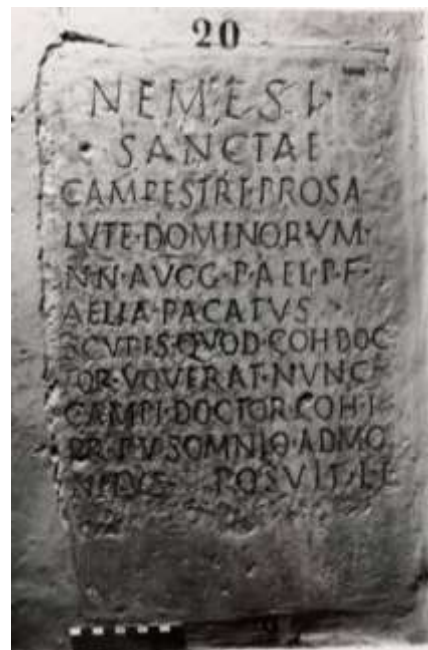 20
NEMESI·
SANCTAE
CAMPESTRI·PROSA
LVTE·DOMINORVM·
NN·AVGG·P·AEL·P·F·
AELIA·PACATVS
SCVPIS·QVOD·COH·DOC
TOR·VOVERAT·NVNC·
CAMPI·DOCTOR·COH·I·
PR·P·V·SOMNIO·ADMO
POSVIT·L